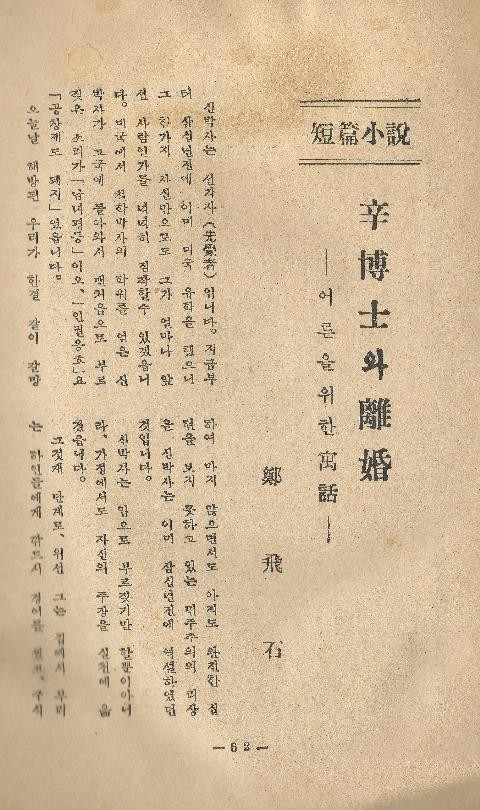 短篇小說
辛博士와 離婚
—어른을 위한 寓話—
鄭飛石
신박사는 선각자(先覺者)입니다. 지금부
터 삼십년전에 이미 미국 유학을 했으니
그 한가지 사실만으로도 그가 얼마나 앞
선 사람인가를 넉넉히 짐작할수 있겠읍니
다. 미국에서 철학박사의 학위를 얻은 신
박사가 고국에 돌아와서 맨처음으로 부르
짖은 소리가「남녀평등」이오,「인권옹호」요
「공창제도 폐지」였읍니다.
오늘날 해방된 우리가 한결 같이 갈망
하여 마지 않으면서도 아직도 완전한 실
현을 보지 못하고 있는 민주주의의 리상
을 신박사는 이미 삼십년전에 역설하였던
것입니다.
신박사는 입으로 부르짖기만 할뿐이아니
라, 가정에서도 자신의 주장을 실천에 옮
겼읍니다.
그것재 단계로, 위선 그는 집에서 부리
는 하인들에게 깎드시 경어를 썼고, 주식
—62—